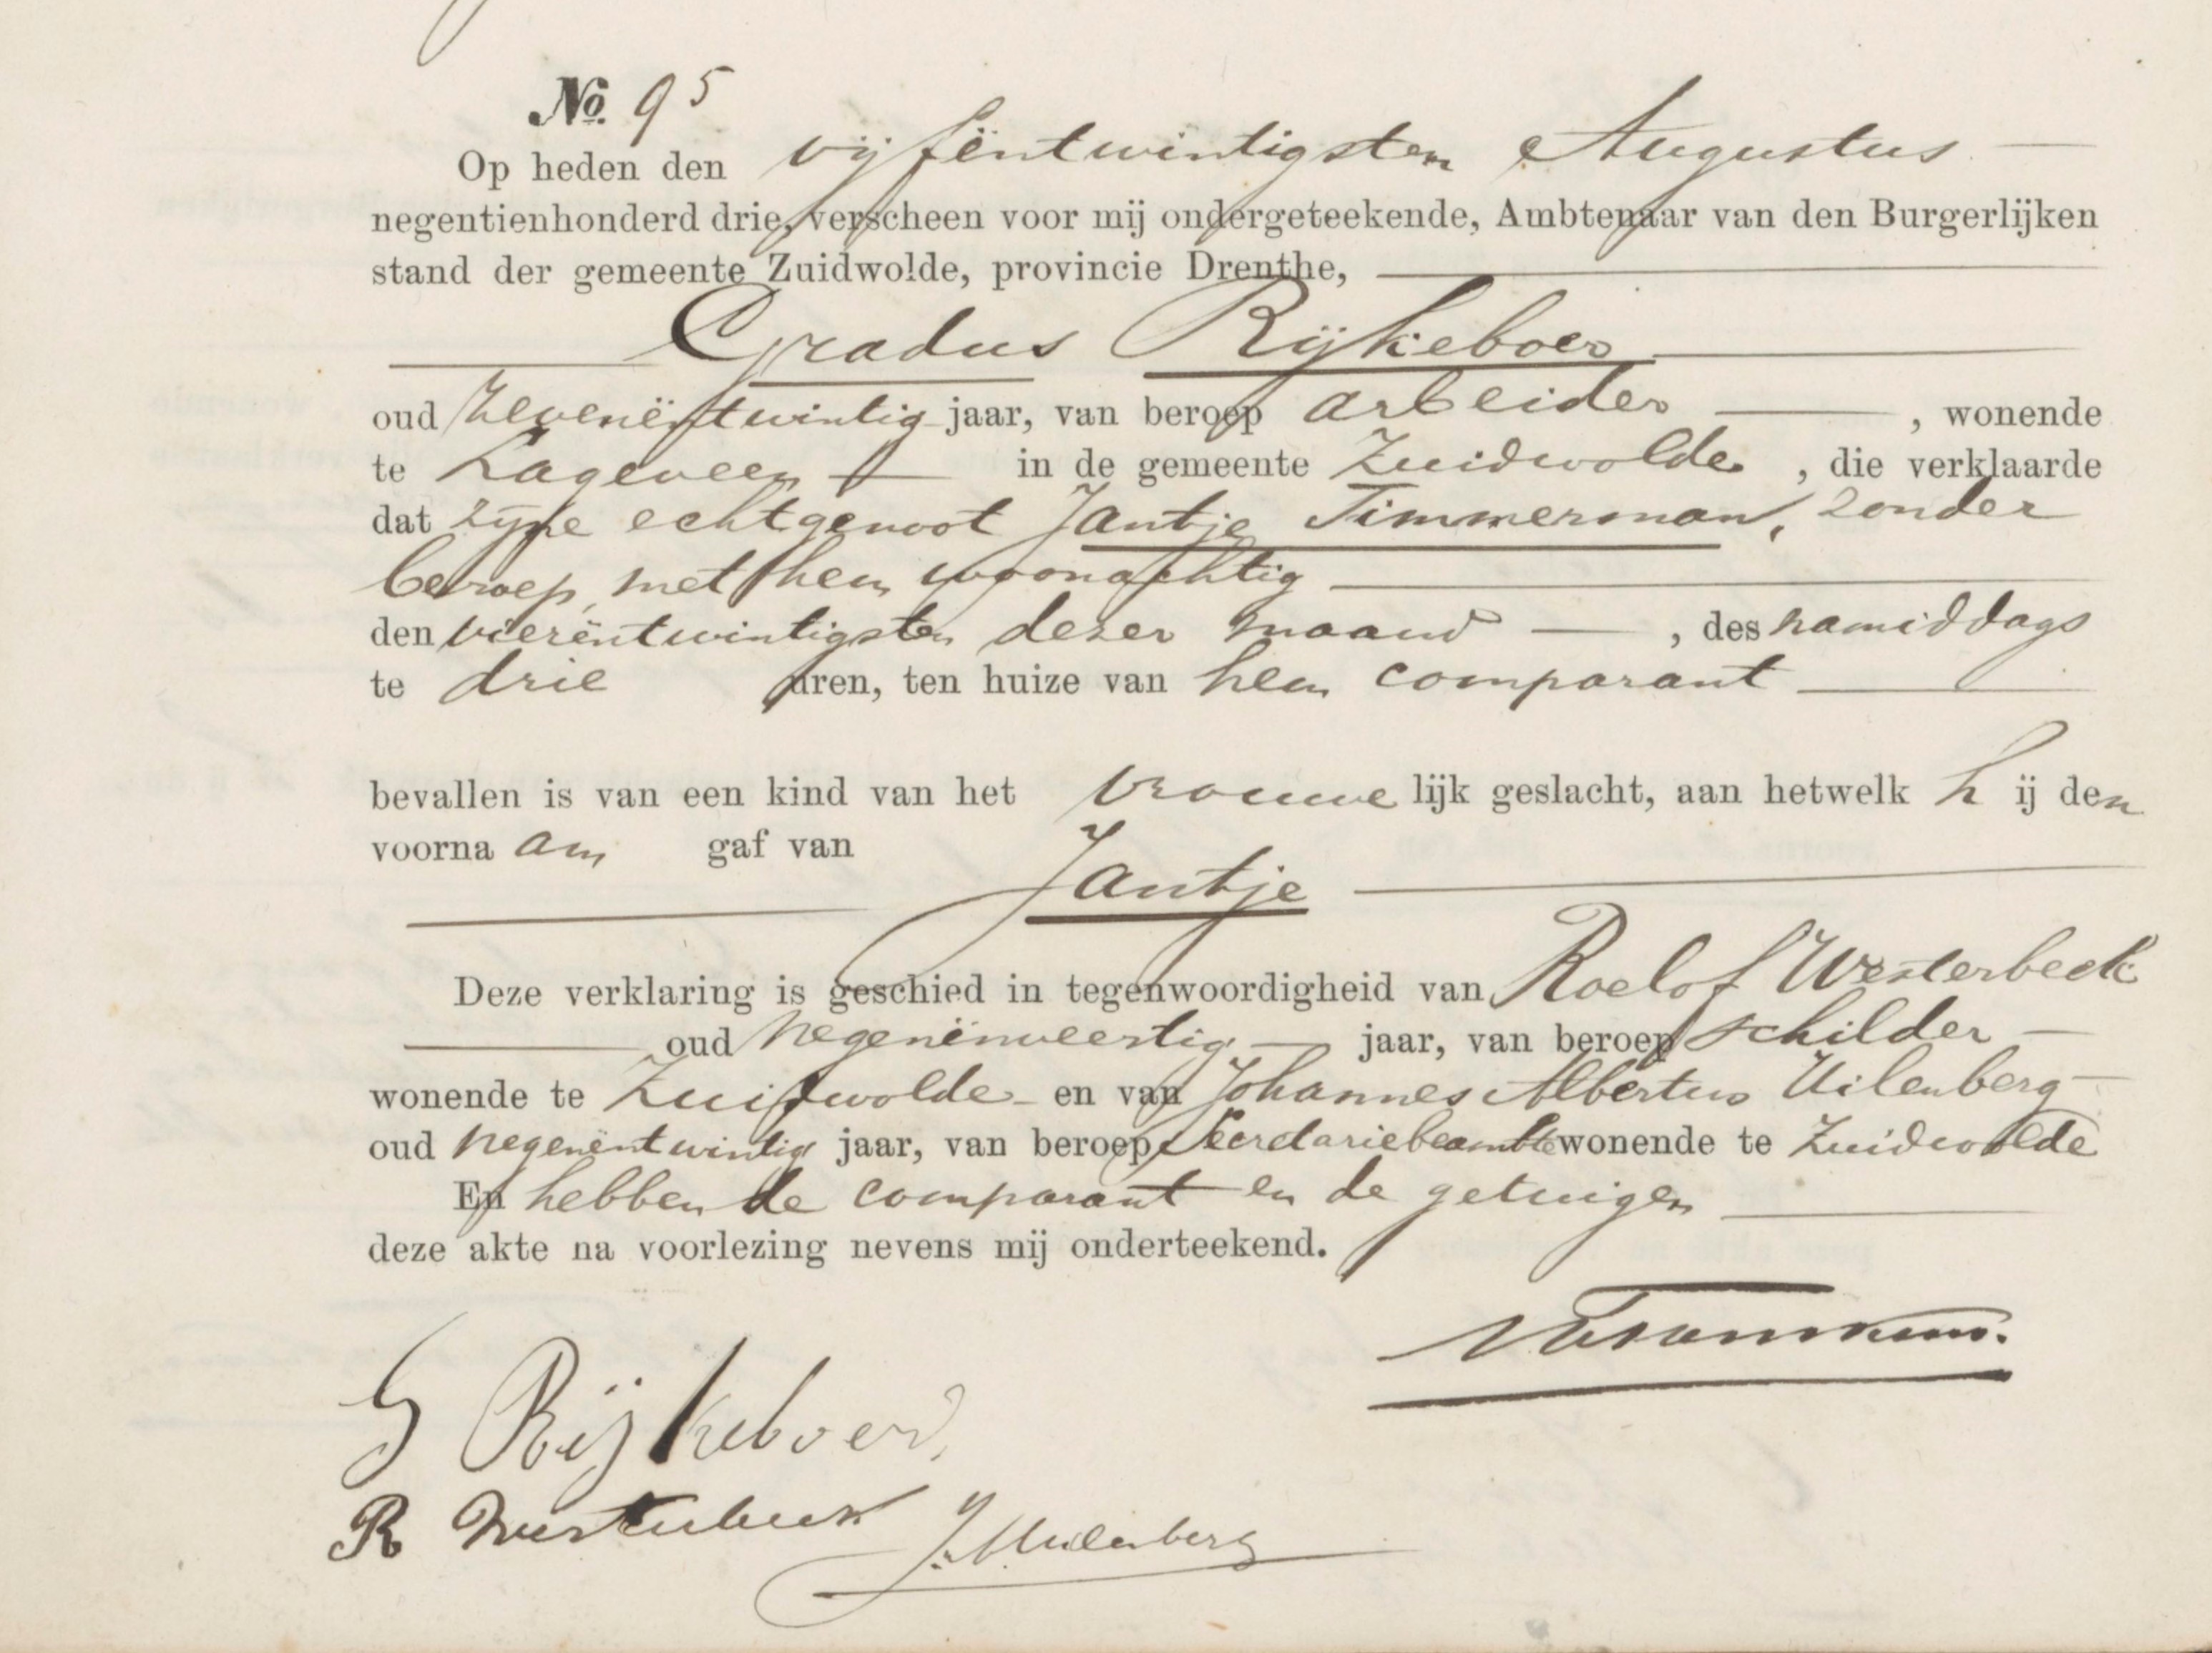 No. 95
Op heden den vijfëntwintigsten Augustus
negentienhonderd drie, verscheen voor mij ondergeteekende, Ambtenaar van den Burgerlijken
stand der gemeente Zuidwolde, provincie Drenthe,
Gradus Rijkeboer
oud zevenëntwintig jaar, van beroep arbeider, wonende
te Lageveen in de gemeente Zuidwolde, die verklaarde
dat zijne echtgenoot Jantje Timmerman, zonder
beroep, met hem woonachtig
den vierëntwintigsten dezer maand, des namiddags
te drie uren, ten huize van hem comparant
bevallen is van een kind van het vrouwelijk geslacht, aan hetwelk hij den
voornaam gaf van
Jantje
Deze verklaring is geschied in tegenwoordigheid van Roelof Westerbeek
oud negenënveertig jaar, van beroep schilder
wonende te Zuidwolde en van Johannes Albertus Uilenberg
oud negenëntwintig jaar, van beroep Secretariebeambte wonende te Zuidwolde
En hebben de comparant en de getuigen
deze akte na voorlezing nevens mij onderteekend.
G Rijkeboer
R Westerbeek J. A. Uilenberg